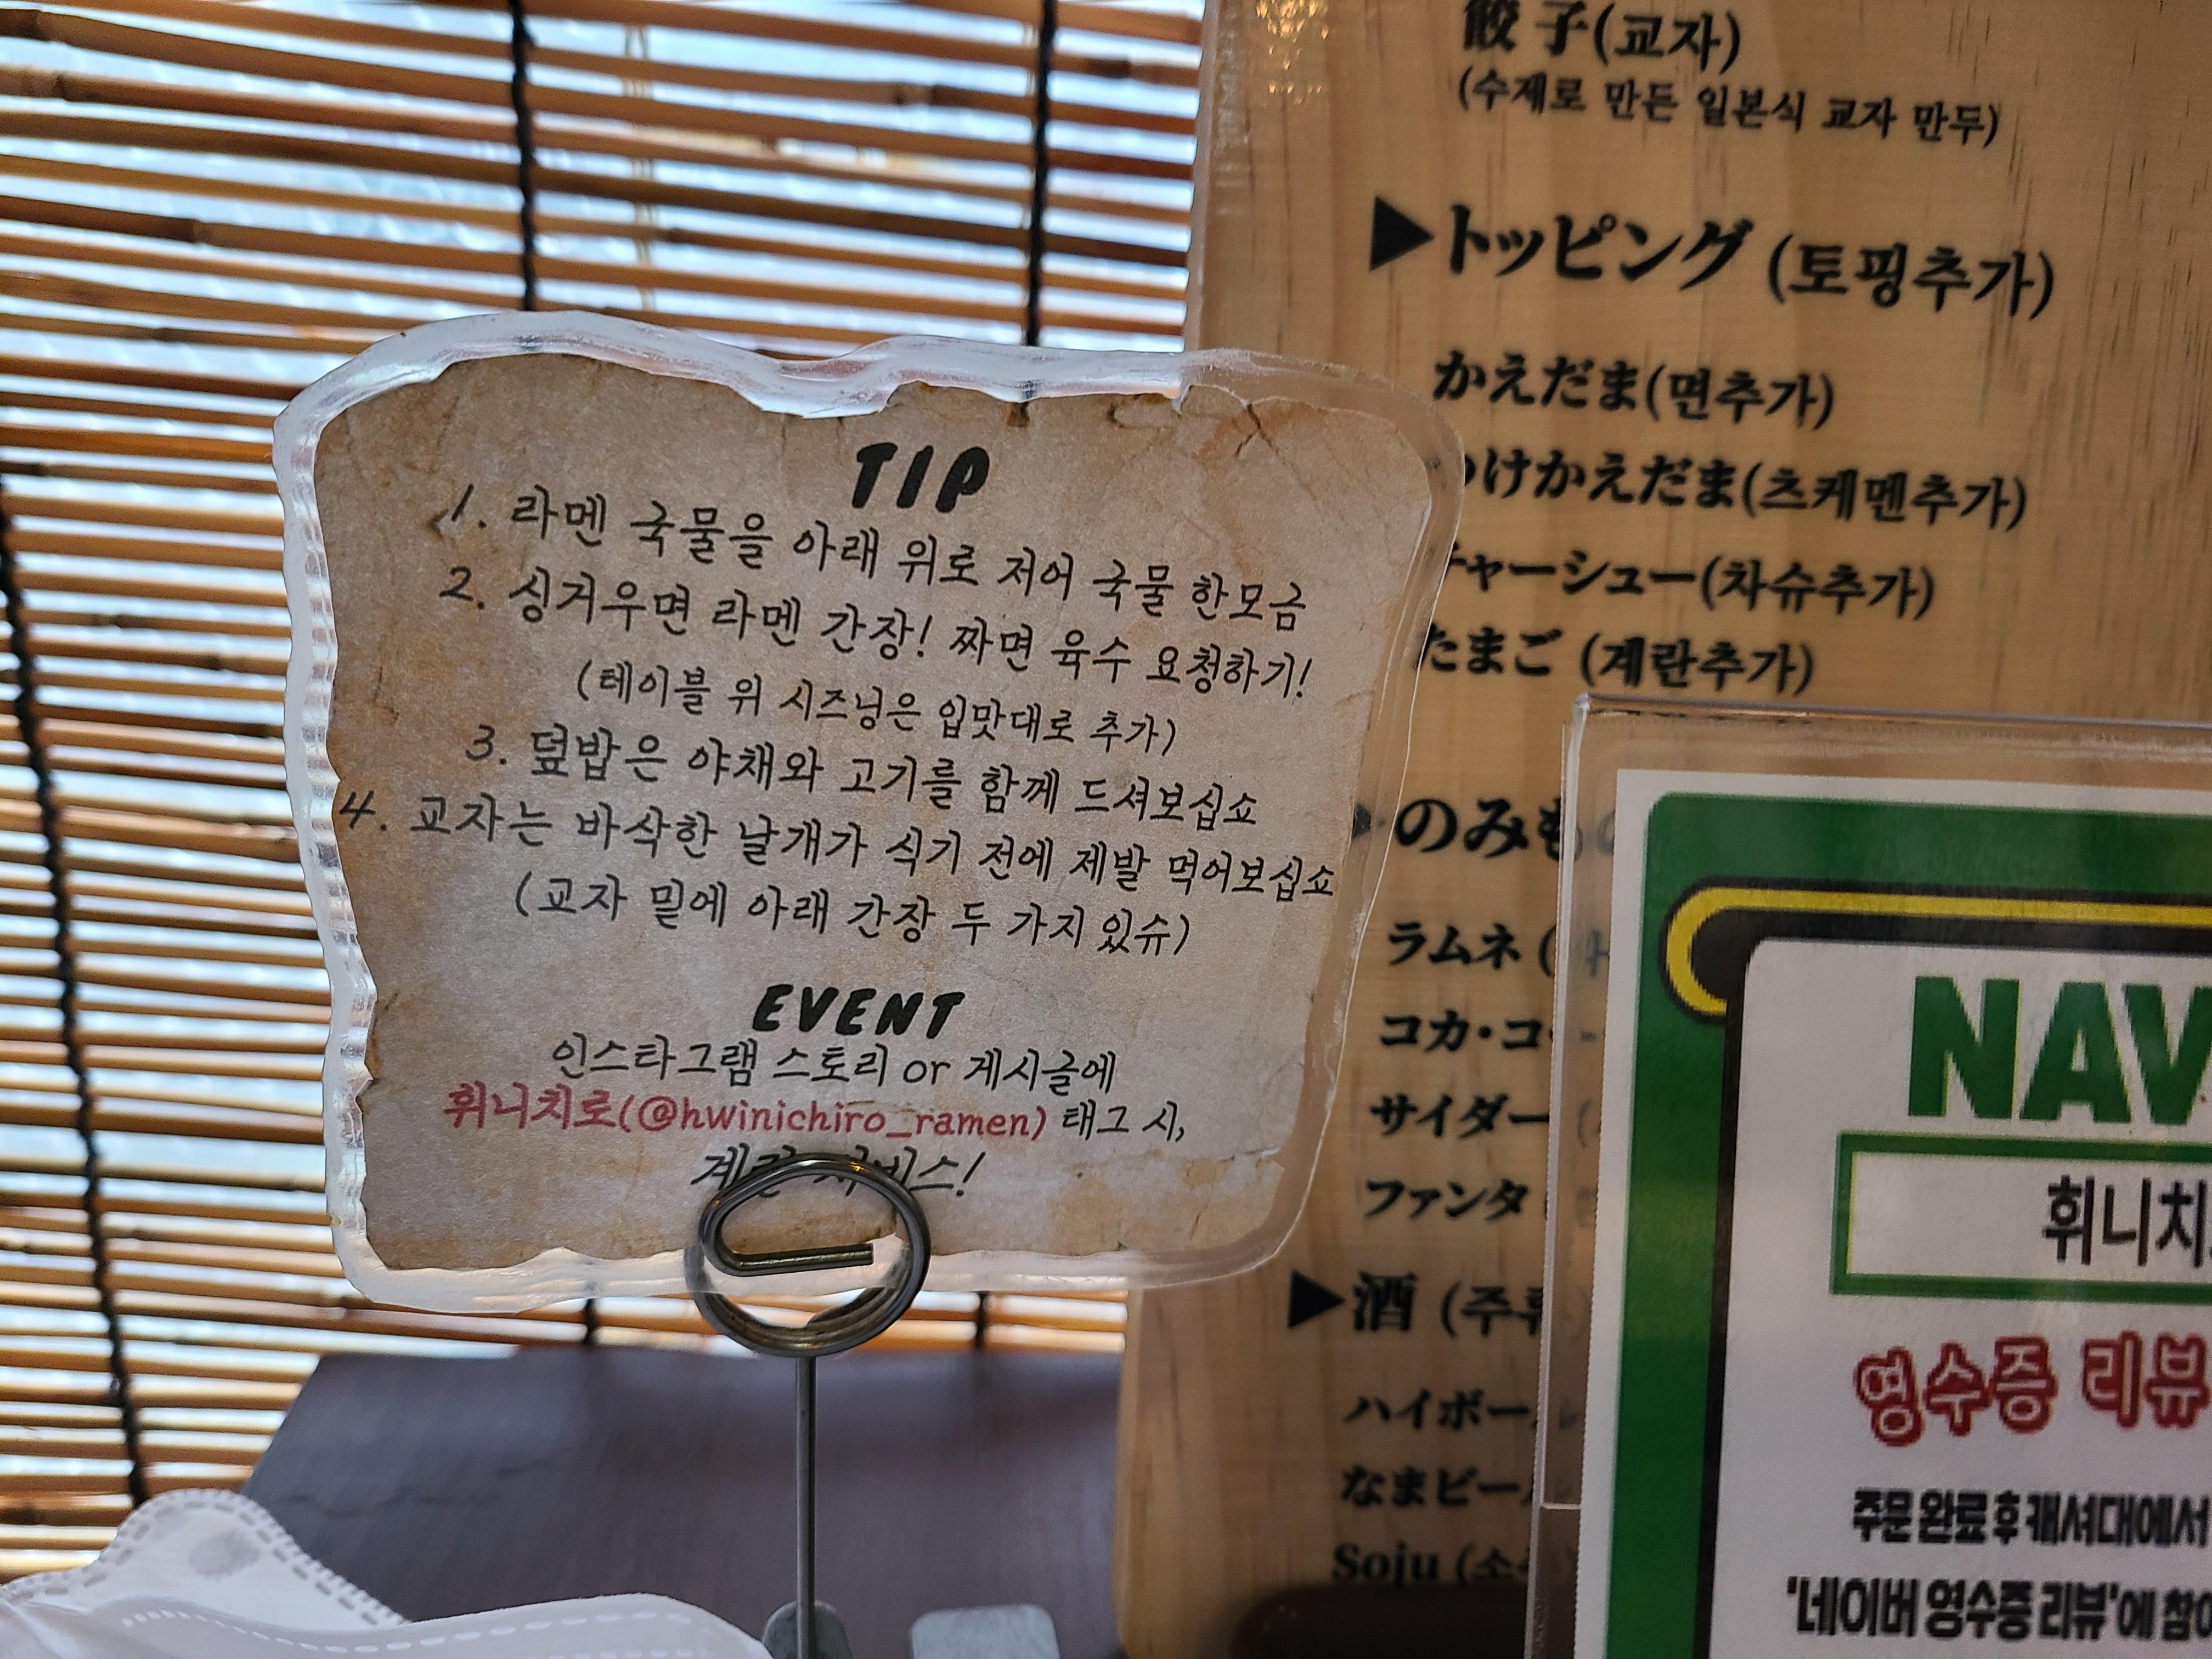 TIP
1. 라멘 국물을 아래 위로 저어 국물 한모금
2. 싱거우면 라멘 간장! 짜면 육수 요청하기!
(테이블 위 시즈닝은 입맛대로 추가)
3. 덮밥은 야채와 고기를 함께 드셔보십쇼
4. 교자는 바삭한 날개가 식기 전에 제발 먹어보십쇼
(교자 밑에 아래 간장 두 가지 있슈)
EVENT
인스타그램 스토리 or 게시글에
휘니치로(@hwinichiro_ramen) 태그 시,
餃子(교자)
(수제로 만든 일본식 교자 만두)
▶トッピング (토핑추가)
かえだま(면추가)
つけかえだま(츠케멘추가)
チャーシュー(차슈추가)
たまご (계란추가)
ラムネ
サイダー
ファンタ
▶酒
Soju
영수증 리뷰
주문 완료 후 캐셔대에서
'네이버 영수증 리뷰'에